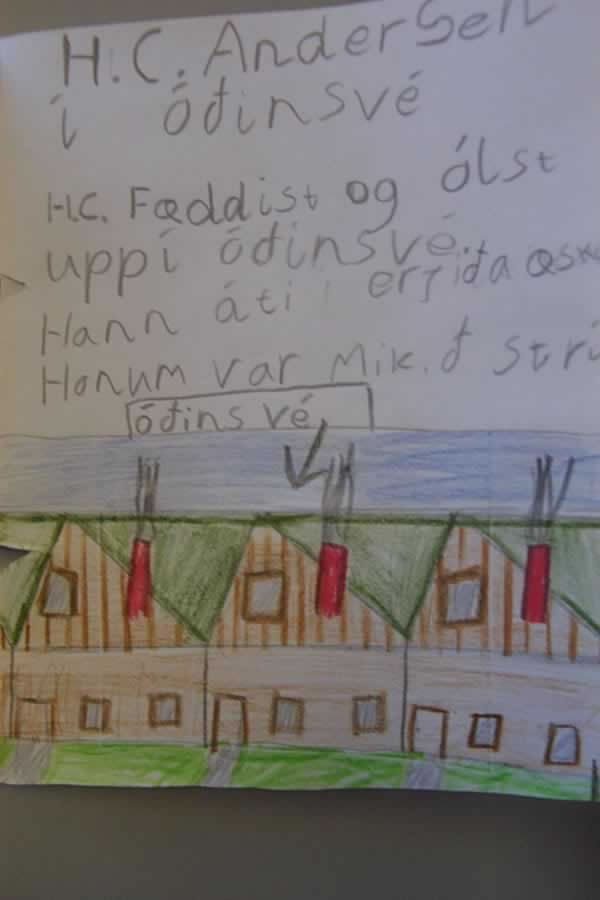 H.C. Andersen
í óðinsvé
H.C. Fæddist og ólst
uppí óðinsvé.
Hann áti erfiða æsk
Honum var Mik.ð strí
óðins vé